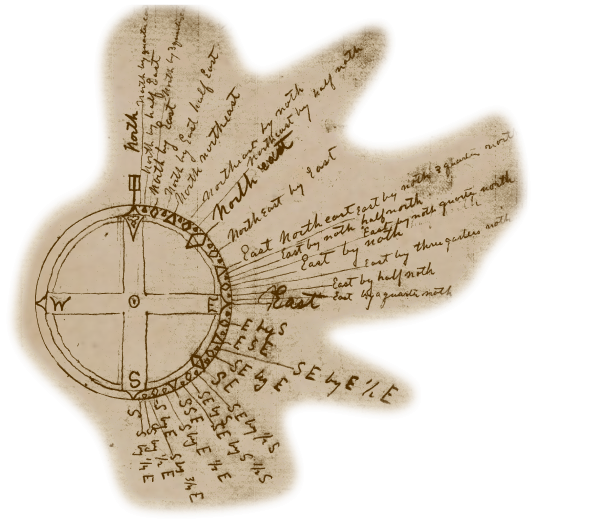 North
North by quarter
North by half East
North by 3 quarter
North by East
North by East half East
North northeast
Northeast by noth
northeast by half noth
North east
North East by East
East North east
East by noth 3 quarter noth
East by noth half north
East by noth quarter noth
East by noth
East by three quarters noth
East by half noth
East by a quarter noth
East
W
E
S
E by S
E S E
SE by E 1/2 E
SE by E
SE
SE by 1/2 S
SE by S 1/2 S
SE by S
SSE
S by E 1/2 E
S by E
S by 3/4 E
S by 1/2 E
S by 1/4 E
S